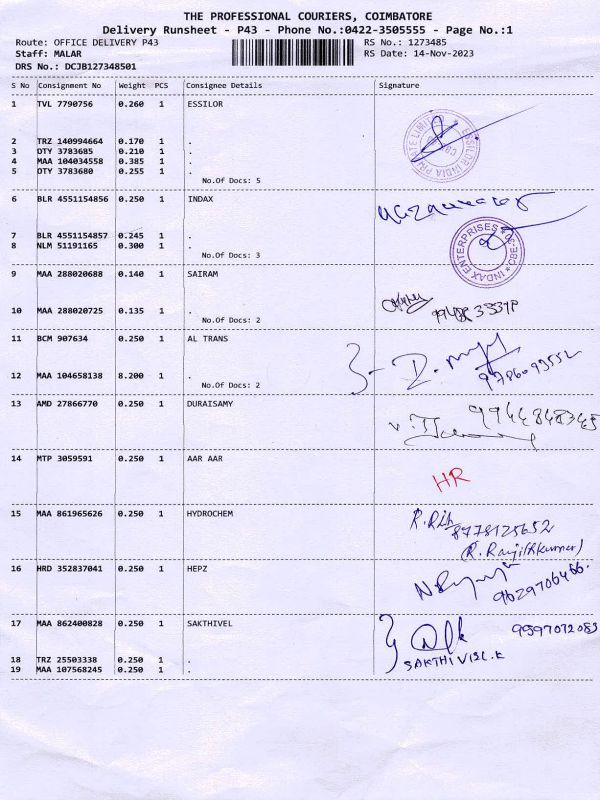 THE PROFESSIONAL COURIERS, COIMBATORE
Delivery Runsheet - P43 - Phone No.:0422-3505555 - Page No.:1
Route: OFFICE DELIVERY P43 RS No.: 1273485
Staff: MALAR RS Date: 14-Nov-2023
DRS No.: DCJB127348501
S No Consignment No Weight PCS Consignee Details Signature
1 TVL 7790756 0.260 1 ESSILOR
ESSILOR INDIA PRIVATE LIMITED
2 TRZ 140994664 0.170 1 .
3 OTY 3783685 0.210 1 .
4 MAA 104034558 0.385 1 .
5 OTY 3783680 0.255 1 .
No.Of Docs: 5
6 BLR 4551154856 0.250 1 INDAX
INDAX ENTERPRISES * CBE-35 *
7 BLR 4551154857 0.245 1 .
8 NLM 51191165 0.300 1 .
No.Of Docs: 3
9 MAA 288020688 0.140 1 SAIRAM
10 MAA 288020725 0.135 1 .
No.Of Docs: 2
11 BCM 907634 0.250 1 AL TRANS
12 MAA 104658138 8.200 1 .
No.Of Docs: 2
13 AMD 27866770 0.250 1 DURAISAMY
9944848345
14 MTP 3059591 0.250 1 AAR AAR
HR
15 MAA 861965626 0.250 1 HYDROCHEM
8778125652
(R. Ranjithkumar)
16 HRD 352837041 0.250 1 HEPZ
9629706466.
17 MAA 862400828 0.250 1 SAKTHIVEL
9597072083
SAKTHIVEL.K
18 TRZ 25503338 0.250 1 .
19 MAA 107568245 0.250 1 .